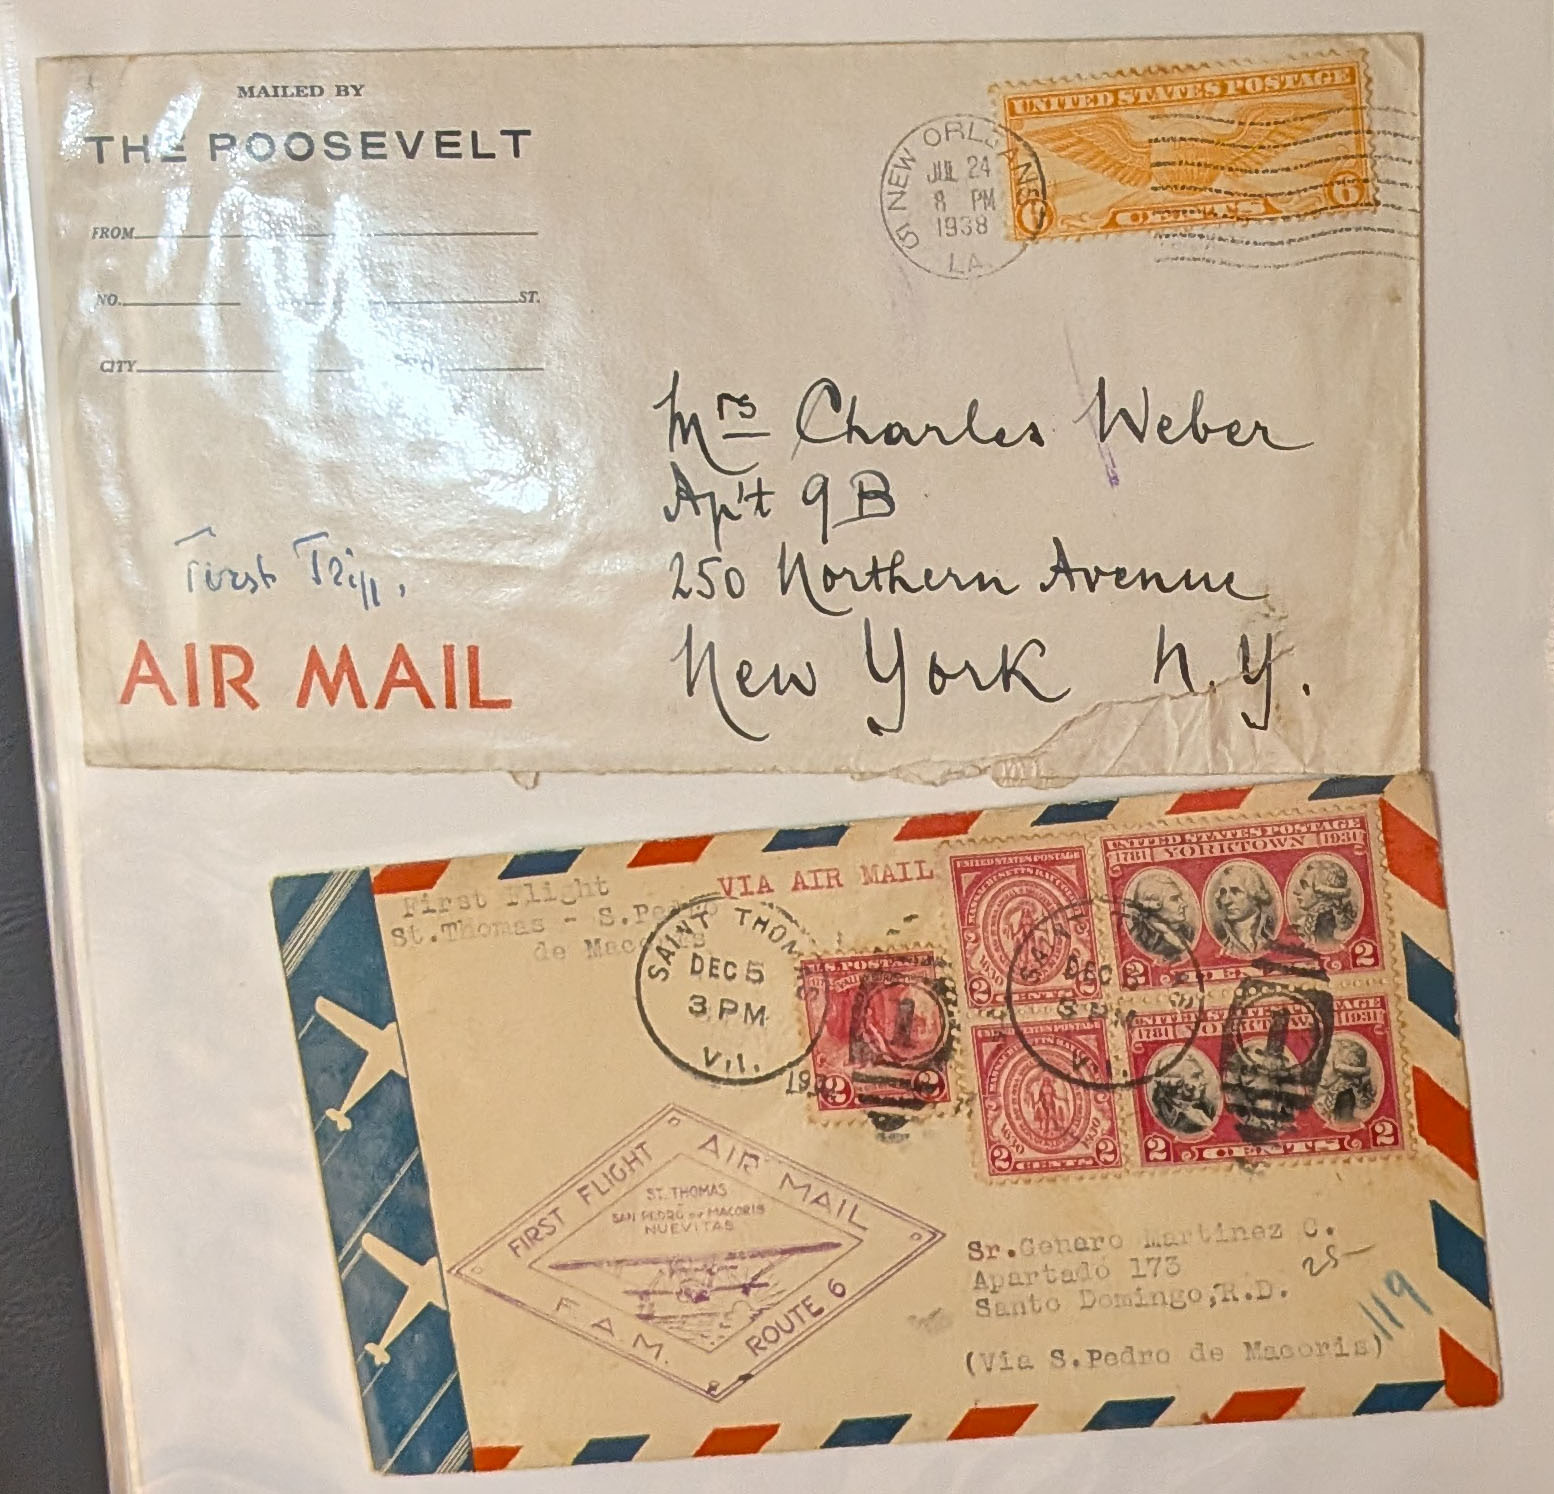 MAILED BY
THE ROOSEVELT
FROM
NO. ST.
CITY
UNITED STATES POSTAGE
6 CENTS 6
NEW ORLEANS
JUL 24
8 PM
1938
LA.
5
Mrs Charles Weber
Ap't 9B
250 Northern Avenue
New York N.Y.
First Trip,
AIR MAIL
First Flight
St.Thomas - S.Pedro
de Macoris
VIA AIR MAIL
SAINT THOMAS
DEC 5
3 PM
V.I.
U.S. POSTAGE
2 2
UNITED STATES POSTAGE
2 CENTS 2
UNITED STATES POSTAGE
1781 YORKTOWN 1931
2 CENTS 2
SAINT
DEC 5
3 PM
V.I.
UNITED STATES POSTAGE
2 CENTS 2
UNITED STATES POSTAGE
1781 YORKTOWN 1931
2 CENTS 2
1
1
FIRST FLIGHT AIR MAIL
ST. THOMAS
SAN PEDRO DE MACORIS
NUEVITAS
F.A.M. ROUTE 6
Sr.Genaro Martinez C.
Apartado 173
Santo Domingo,R.D.
25-
(Via S.Pedro de Macoris)
119